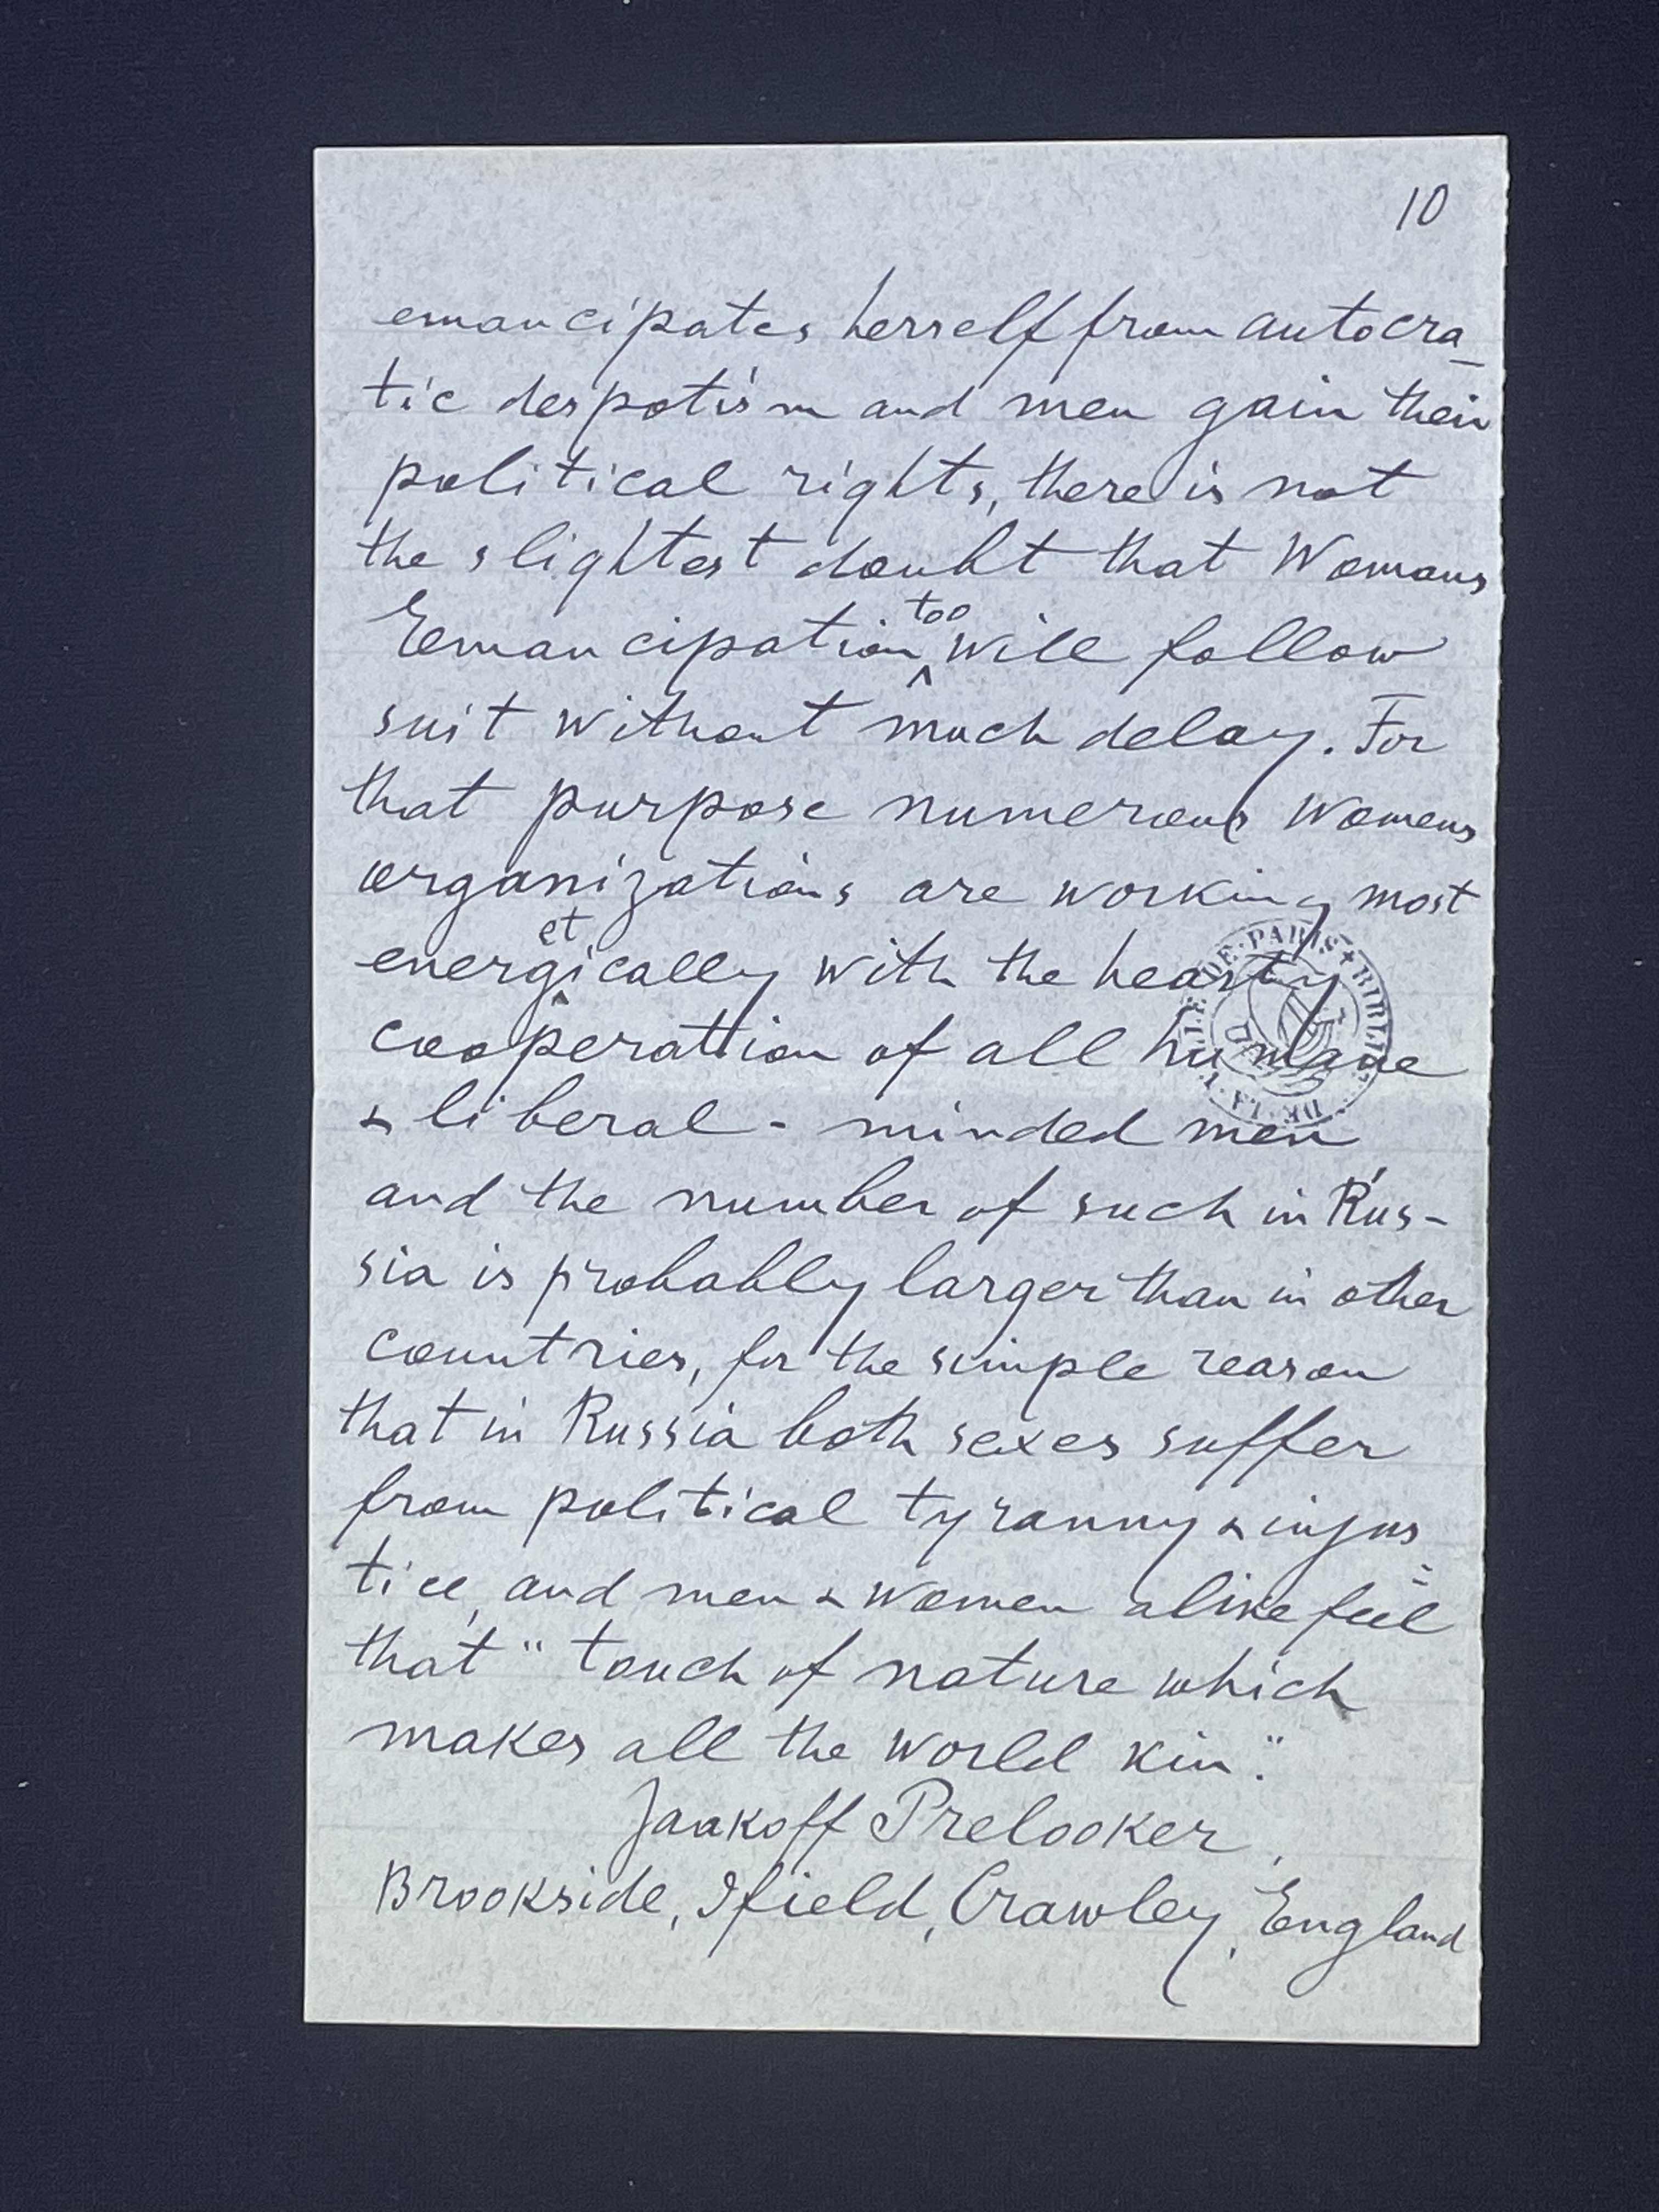 10
emancipates herself from autocra-
tic despotism and men gain their
political rights, there is not
the slightest doubt that Womans
Emancipation too will follow
suit without much delay. For
that purpose numerous Womens
organizations are working most
energetically with the hearty
cooperation of all humane
& liberal-minded men
and the number of such in Rus-
sia is probably larger than in other
countries, for the simple reason
that in Russia both sexes suffer
from political tyranny & injus=
tice, and men & women alike feel
that "touch of nature which
makes all the world kin."
Jaakoff Prelooker,
Brookside, Ifield, Crawley, England